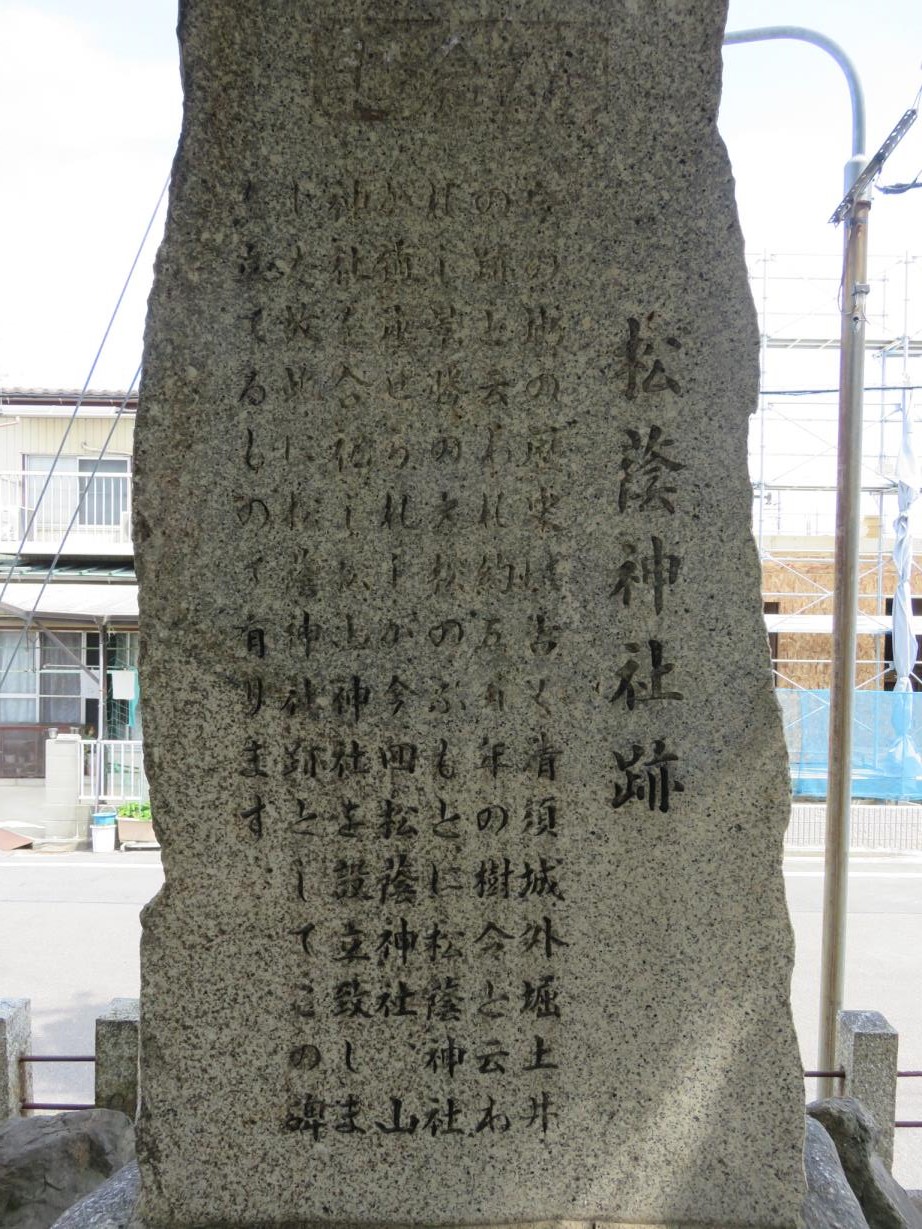 松蔭神社跡
の歴史は古く清須城外堀土井
の跡と云われ約五百年の樹令と云わ
れしの老松のふもとに松蔭神社
がせられしが今回松蔭神社山
社を合祀し神社を設立致しま
した故に松蔭神社跡としてこの碑
てるもので有ります